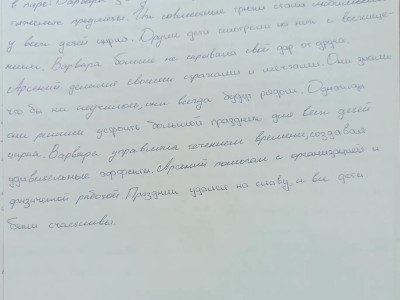 в паре: Варвара
тяжелые предметы. Их совместные трюки стали любимыми
у всех детей цирка. Другие дети смотрели на них с восхище-
нием. Варвара больше не скрывала свой дар от друга.
Арсений делился своими страхами и мечтами. Они знали
что бы ни случилось, они всегда будут рядом. Однажды
они решили устроить большой праздник для всех детей
цирка. Варвара управляла течением времени, создавая
удивительные эффекты. Арсений помогал с организацией и
физической работой. Праздник удался на славу, и все дети
были счастливы.